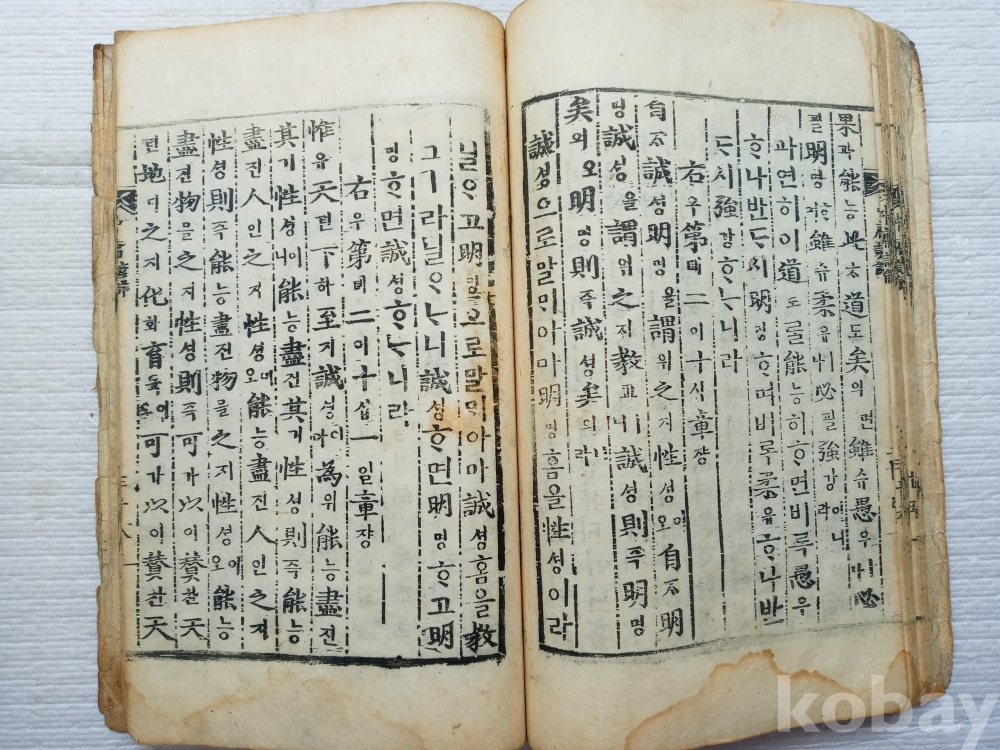 果과能능此ᄎᆞ道도矣의면雖슈愚우ㅣ나必
필明명ᄒᆞ며雖슈柔유ㅣ나必필強강이니라
과연히이道도ᄅᆞᆯ能능히ᄒᆞ면비록愚우
ᄒᆞ나반ᄃᆞ시明명ᄒᆞ며비록柔유ᄒᆞ나반
ᄃᆞ시強강ᄒᆞᄂᆞ니라
右우第뎨二이十시章쟝
自ᄌᆞ誠셩明명을謂위之지性셩이오自ᄌᆞ明
명誠셩을謂위之지敎교ㅣ니誠셩則즉明명
矣의오明명則즉誠셩矣의라
誠셩으로말ᄆᆡ아마明명홈을性셩이라
닐ᄋᆞ고明명으로말ᄆᆡ아마誠셩홈을敎
ㅣ라닐ᄋᆞᄂᆞ니誠셩ᄒᆞ면明명ᄒᆞ고明
명ᄒᆞ면誠셩ᄒᆞᄂᆞ니라
右우第뎨二이十십一일章쟝
惟유天텬下하至지誠셩이아爲위能능盡진
其기性셩이니能능盡진其기性셩則즉能능
盡진人인之지性셩이오能능盡진人인之지
性셩則즉能능盡진物믈之지性셩이오能능
盡진物믈之지性셩則즉可가以이贊찬天
텬地디之지化화育육이오可가以이贊찬天
kobay